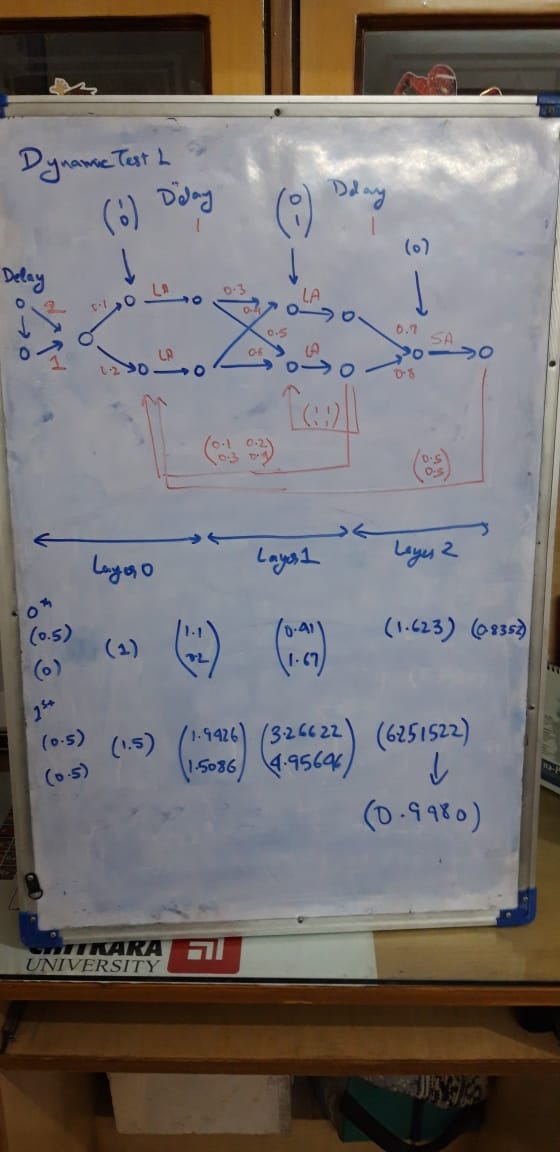 Dynamic Test 1
(1 0) Delay 1
(0 1) Delay 1
(0)
Delay
2
1
0.1
0.2
LA
LA
0.3
0.4
0.5
0.6
LA
LA
0.7
0.8
SA
(1 1
1 1)
(0.1 0.2
0.3 0.4)
(0.5
0.5)
Layer 0
Layer 1
Layer 2
0th
(0.5)
(0)
(1)
(1.1
0.2)
(0.41
1.67)
(1.623) (0.8352)
1st
(0.5)
(0.5)
(1.5)
(1.9426
1.5086)
(3.26622
4.95646)
(6251522)
(0.9980)
CHITKARA
UNIVERSITY